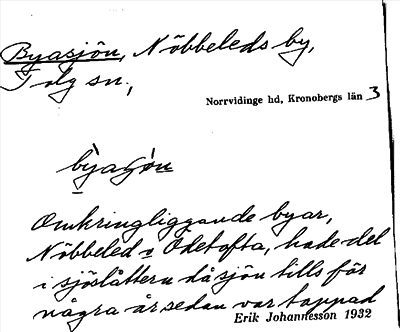 Byasjön, Nöbbeleds by,
Tolg sn.,
Norrvidinge hd, Kronobergs län 3
byasjön
Omkringliggande byar,
Nöbbeled o Odetofta, hade del
i sjöslåttern då sjön tills för
några år sedan var tappad
Erik Johannesson 1932